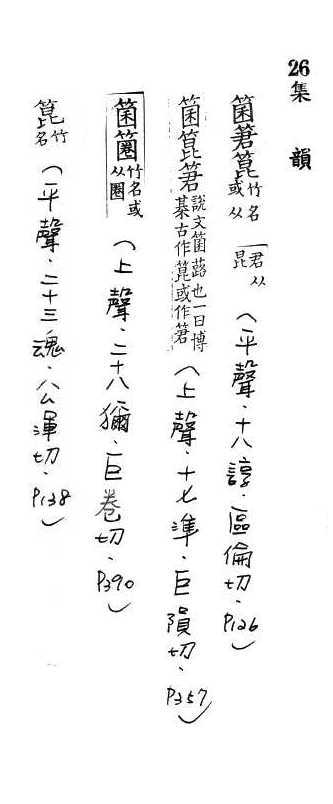 26 集韻
箘箬箟竹名或从君从昆（平聲．十八諄．區倫切．P126）
箘箟箬說文箘簬也一曰博棊古作箟或作箬（上聲．十七準．巨隕切．P357）
箘圈竹名或从圈（上聲．二十八獮．巨卷切．P390）
箟竹名（平聲．二十三魂．公渾切．P138）